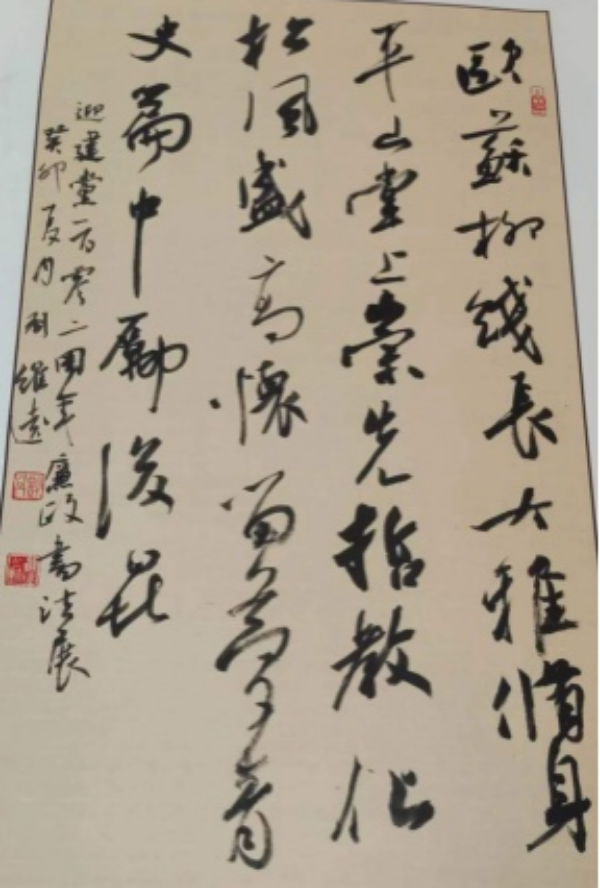 歐蘇柳綫長大雅脩身
平山堂上崇先哲教化
松風盛高懷留夢青
史篇中勵後昆
迎建黨一百零二周年廉政書法展
癸卯夏月劉維遠